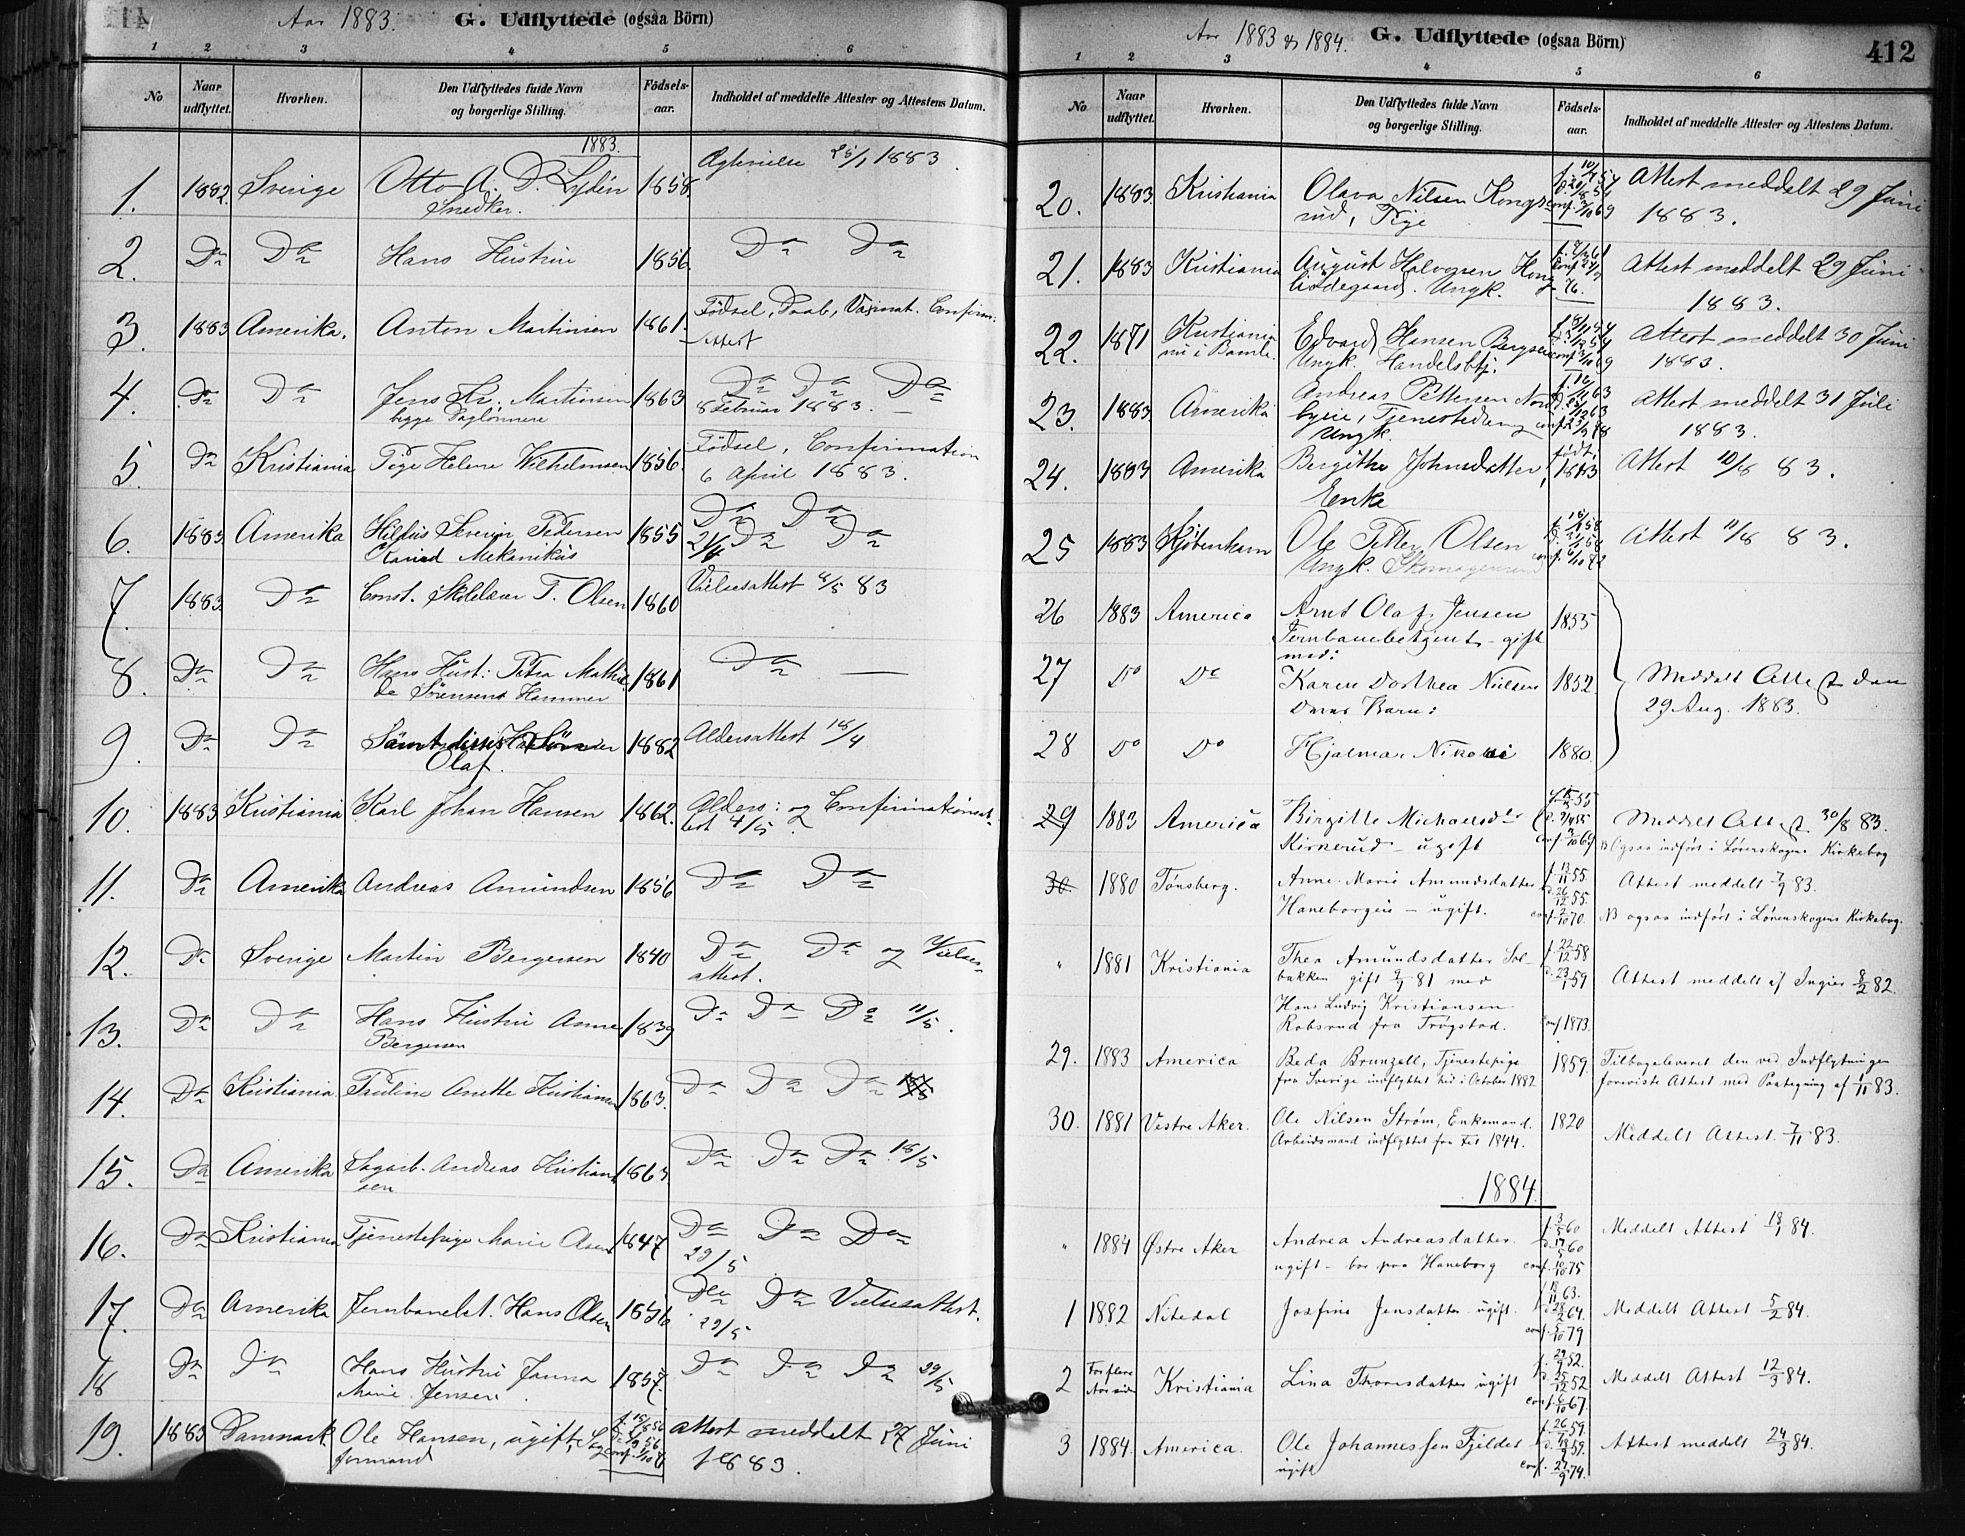 Aar 1883. G. Udflyttede (ogsaa Börn)
1 2 3 4 5 6
No Naar udflyttet. Hvorhen. Den Udflyttedes fulde Navn og borgerlige Stilling. Fødsels-aar. Indholdet af meddelte Attester og Attestens Datum.
1883.
1. 1882. Sverige Otto A. D. Lydén 1858. Ægtevielse 25/1 1883.
Snedker.
2. Do Do Hans Hustru 1856. Do Do
3. 1883 Amerika. Anton Martinsen 1861. Fødsel, Daab, Vaxinat. Confirm.
Attest
4. Do Do Jens Kr. Martinsen 1863 Do Do Do
begge Daglønnere 8 Februar 1883.
5. Do Kristiania Pige Helene Wilhelmsen 1856. Fødsel, Confirmation
6 April 1883.
6. 1883 Amerika Severin Pedersen 1855 Do Do
Mekanikus Do Do
7. 1883. Do Const. T. Olsen 1860 Vielsesattest 4/5 83
8. Do Do Hans Hust: Petra Mathil- 1861 Do
de Sørensens Hammer
9. Do Do 1882 Aldersattest 18/4
Olaf.
10. 1883 Kristiania Karl Johan Hansen 1862. Alders: og Confirmationsat-
test 4/5
11. Do Amerika Andreas Amundsen 1856 Do Do
12. Do Sverige Martin Bergersen 1840 Do Do og Vielses-
attest.
13. Do Do Hans Hustru Anne 1839 Do Do Do 11/5.
Bergersen
14. Do Kristiania Pauline Anette Kristiansen 1863. Do Do Do
15. Do Amerika Andreas Kristian- 1863. Do Do Do 18/5
sen
16. Do Kristiania Tjenestepige Marie Olsen 1847 Do Do Do
29/5
17. Do Amerika Jernbanebet. Hans Olsen 1856 Do Do Vielsesattest.
29/5
18 Do Do Hans Hustru Janna 1857. Do Do Do 29/5
Marie Jensen.
19. 1883 Danmark. Ole Hansen, ugift, Attest meddelt 27 Juni
formand 1883.
Aar 1883 & 1884. G. Udflyttede (ogsaa Börn) 412
1 2 3 4 5 6
No. Naar udflyttet. Hvorhen. Den Udflyttedes fulde Navn og borgerlige Stilling. Fødsels-aar. Indholdet af meddelte Attester og Attestens Datum.
20. 1883. Kristiania Olava Nilsen Kongs- Attest meddelt 29 Juni
rud, Pige 1883.
21. 1883 Kristiania August Halvorsen Attest meddelt 29 Juni
Ungk. 1883.
22. 1871 Kristiania Edvard Hansen Attest meddelt 30 Juni
nu i Bamle. Ungk. Handelsbtj. 1883.
23. 1883. Amerika Andreas Pettersen Nord- Attest meddelt 31 Juli
byeie, Tjenestedreng 1883.
Ungk.
24. 1883 Amerika Bergithe Johnsdatter, født Attest 10/8 83.
Enke
25 1883 Kjøbenhavn Ole Petter Olsen Attest 11/8 83.
Ungk. Skomagersvend
26 1883 America Arnt Olaf Jensen 1855
Jernbanebetjent - gift
med:
27 Do Do Karen Dorthea Nielsen 1852. Meddelt Attest den
Deres Barn: 29 Aug. 1883.
28 Do Do Hjalmar Nikolai 1880
29 1883 America Birgitte Michaelsdtr Meddelt Attest 30/8 83.
Kirkerud - ugift NB Ogsaa indført i Lørenskogens Kirkebog
30. 1880 Tønsberg. Anne Marie Amundsdatter f. 12/11 55. Attest meddelt 7/9 83.
Haneborgeie - ugift. d. 26/12 55. conf. 2/10 70. NB ogsaa indført i Lørenskogens Kirkebog.
" 1881 Kristiania Thea Amundsdatter Sol- f. 22/12 58
bakken gift 2/9 81 med d. 23/1 59 Attest meddelt af Ingier 8/2 82.
Hans Ludvig Kristiansen
Robsrud fra Trøgstad. conf 1873.
29. 1883 America Beda Brunzell, Tjenestepige 1859. Tilbageleveret den ved Indflytningen
fra Sverige indflyttet hid i October 1882 foreviste Attest med Paategning af 1/11 83.
30. 1881 Vestre Aker. Ole Nilsen Strøm, Enkemand. 1820
Arbeidsmand indflyttet fra Fet 1844. Meddelt Attest 7/11 83.
1884
" 1884 Østre Aker Andrea Andreasdatter f. 3/5 60 Meddelt Attest 18/1 84.
ugift - bor paa Haneborg d. 17/5 60 conf. 10/10 75
1 1882 Nitedal Josefine Jensdatter ugift. f. 18/11 63. d. 28/2 64. conf. 5/10 79 Meddelt Attest 5/2 84.
2 For flere Aar siden Kristiania Lina Thoresdatter ugift f. 29/9 52. d. 25/12 52 conf. 6/10 67. Meddelt Attest 12/3 84.
3 1884. America. Ole Johannessen Fjeldet Attest meddelt 24/3 84.
ugift conf. 27/9 74.